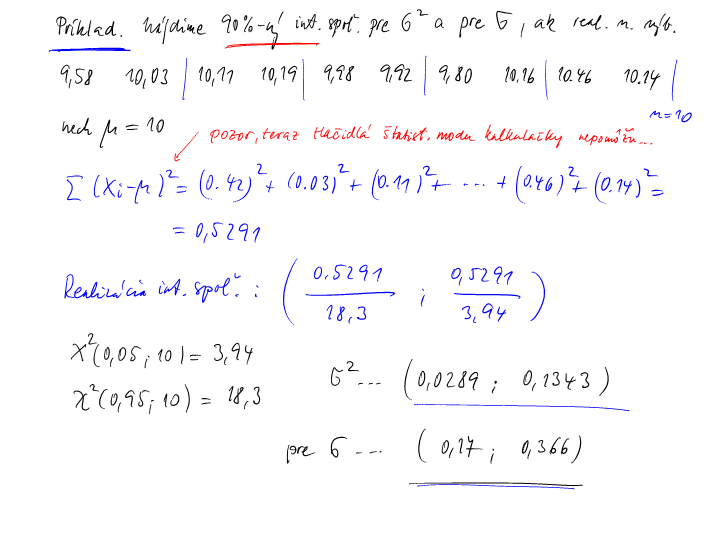 Príklad. Nájdime 90%-ný int. spoľ. pre σ² a pre σ, ak real. n. výb.
9,58 10,03 | 10,11 10,19 | 9,98 9,92 | 9,80 10,16 | 10.46 10.14 |
n=10
nech μ = 10
pozor, teraz tlačidlá štatist. modu kalkulačky nepomôžu...
Σ (Xi-μ)² = (0.42)² + (0.03)² + (0.11)² + ... + (0.46)² + (0.14)² =
= 0,5291
Realizácia int. spoľ. : ( 0.5291 / 18,3 ; 0,5291 / 3,94 )
χ²(0,05; 10) = 3,94
χ²(0,95; 10) = 18,3
σ² ... (0,0289 ; 0,1343)
pre σ ... (0,17 ; 0,366)